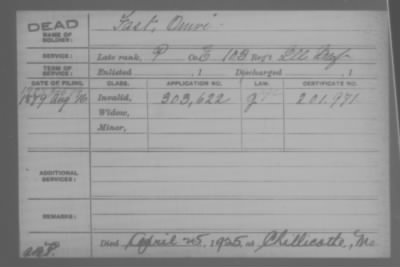 DEAD
NAME OF SOLDIER: Fast, Omri
SERVICE: Late rank, P Co. E 103 Reg't Ill Inf
TERM OF SERVICE: Enlisted , 1 Discharged , 1
DATE OF FILING. CLASS. APPLICATION NO. LAW. CERTIFICATE NO.
Aug Invalid, 303,622 201.971
Widow,
Minor,
ADDITIONAL SERVICES:
REMARKS:
Died April 25, 1925, at Chillicothe, Mo.